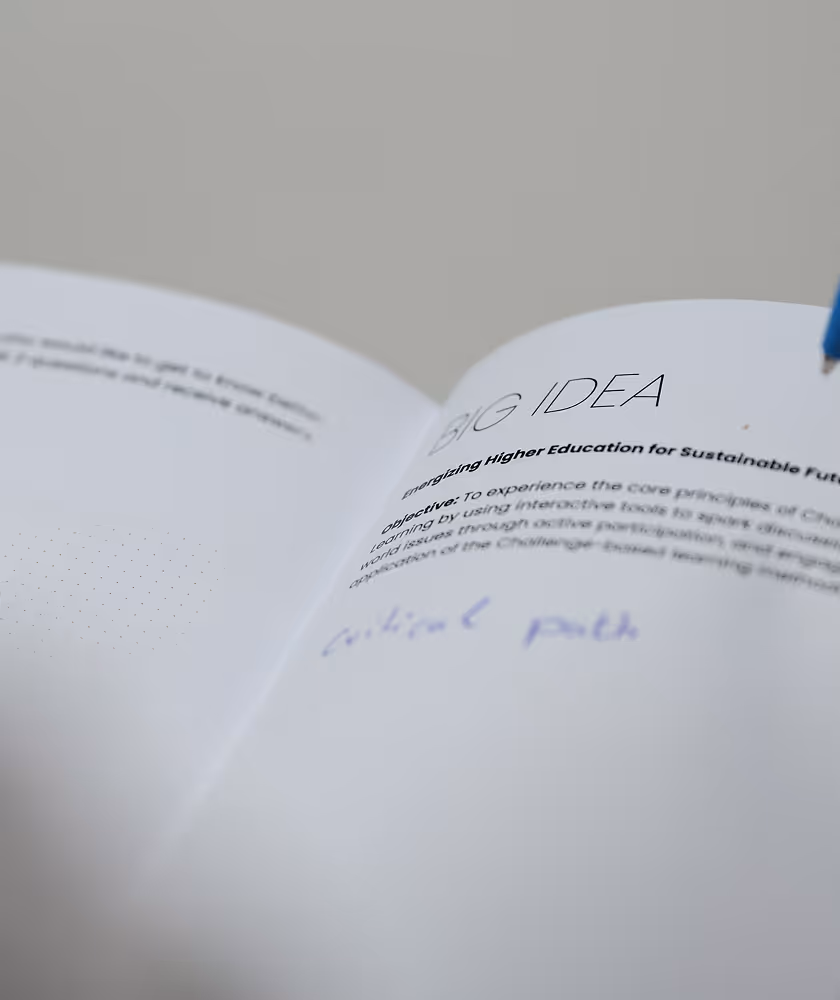 would like to get to know better
questions and receive answers
BIG IDEA
Energizing Higher Education for Sustainable Futu
Objective: To experience the core principles of Cha
Learning by using interactive tools to spark discussi
world issues through active participation, and engag
application of the Challenge-based learning
critical path